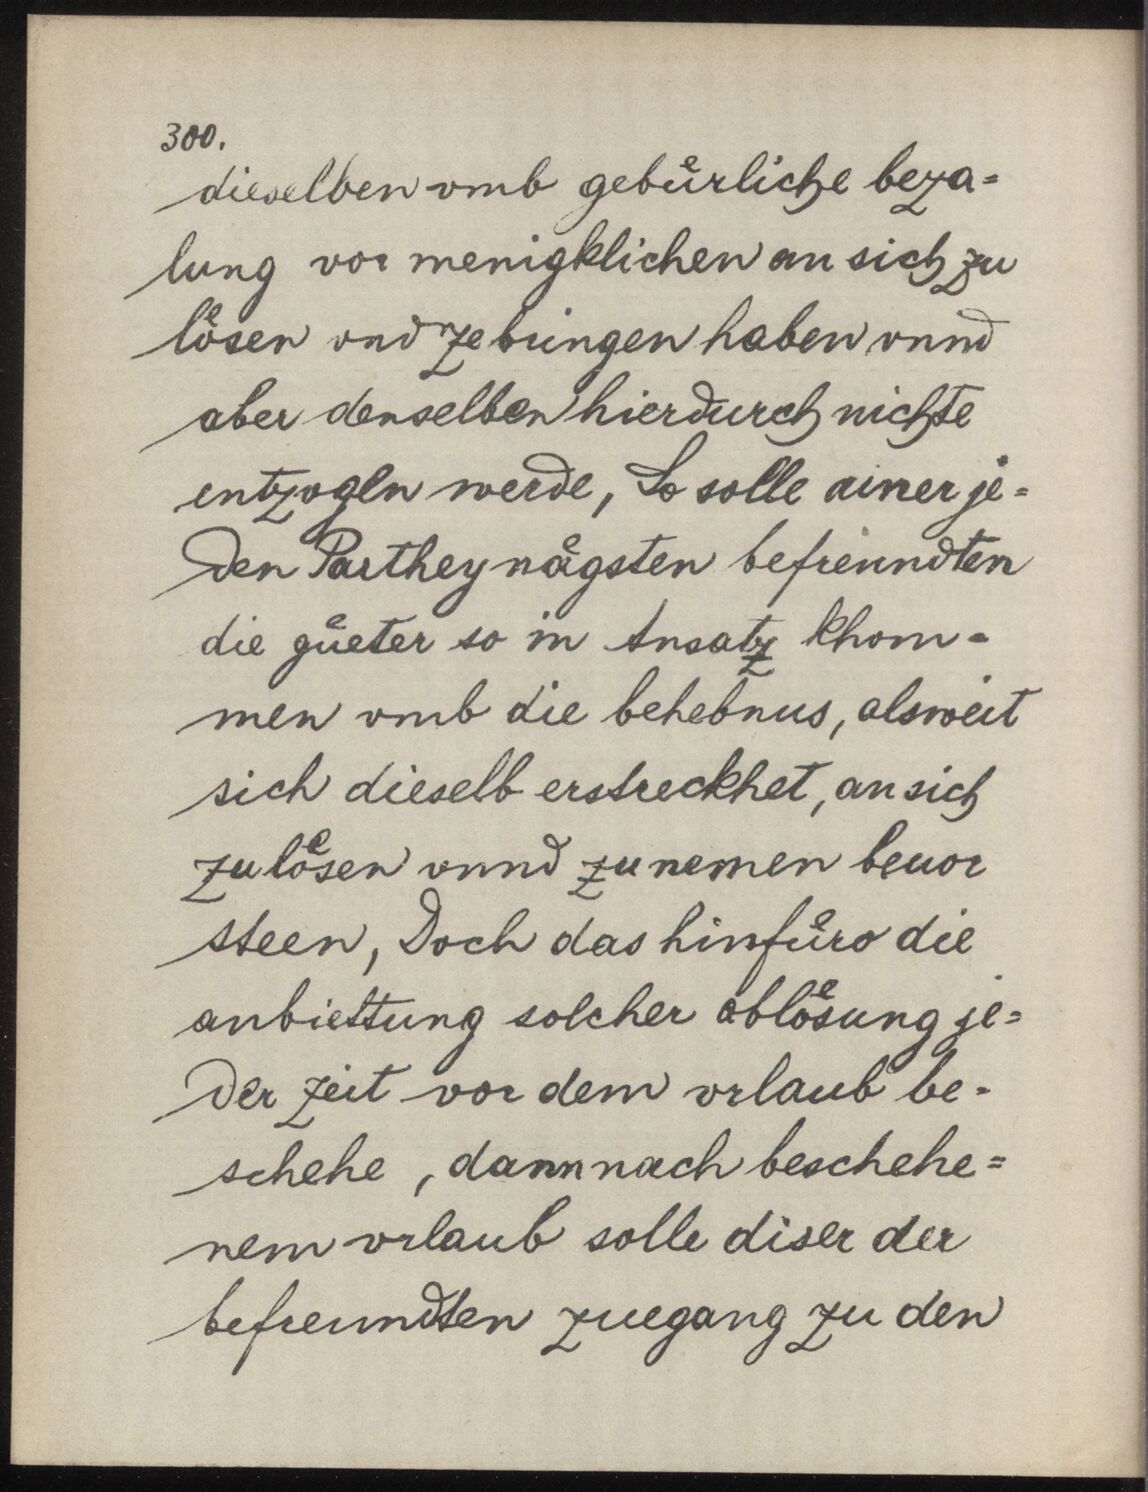 300.
dieselben vmb gebuͤrliche beza=
lung vor menigklichen an sich zu
loͤsen vnd ze bringen haben vnnd
aber denselben hierdurch nichts
entzogen werde, So solle ainer je=
den Parthey naͤgsten befreundten
die guͤeter so in Ansatz khom=
men vmb die behebnus, alsweit
sich dieselb erstreckhet, an sich
zu loͤsen vnnd zu nemen beuor
steen, Doch das hinfuͤro die
anbiettung solcher abloͤsung je=
der Zeit vor dem vrlaub be=
schehe, dann nach beschehe=
nem vrlaub solle diser der
befreundten zuegang zu den